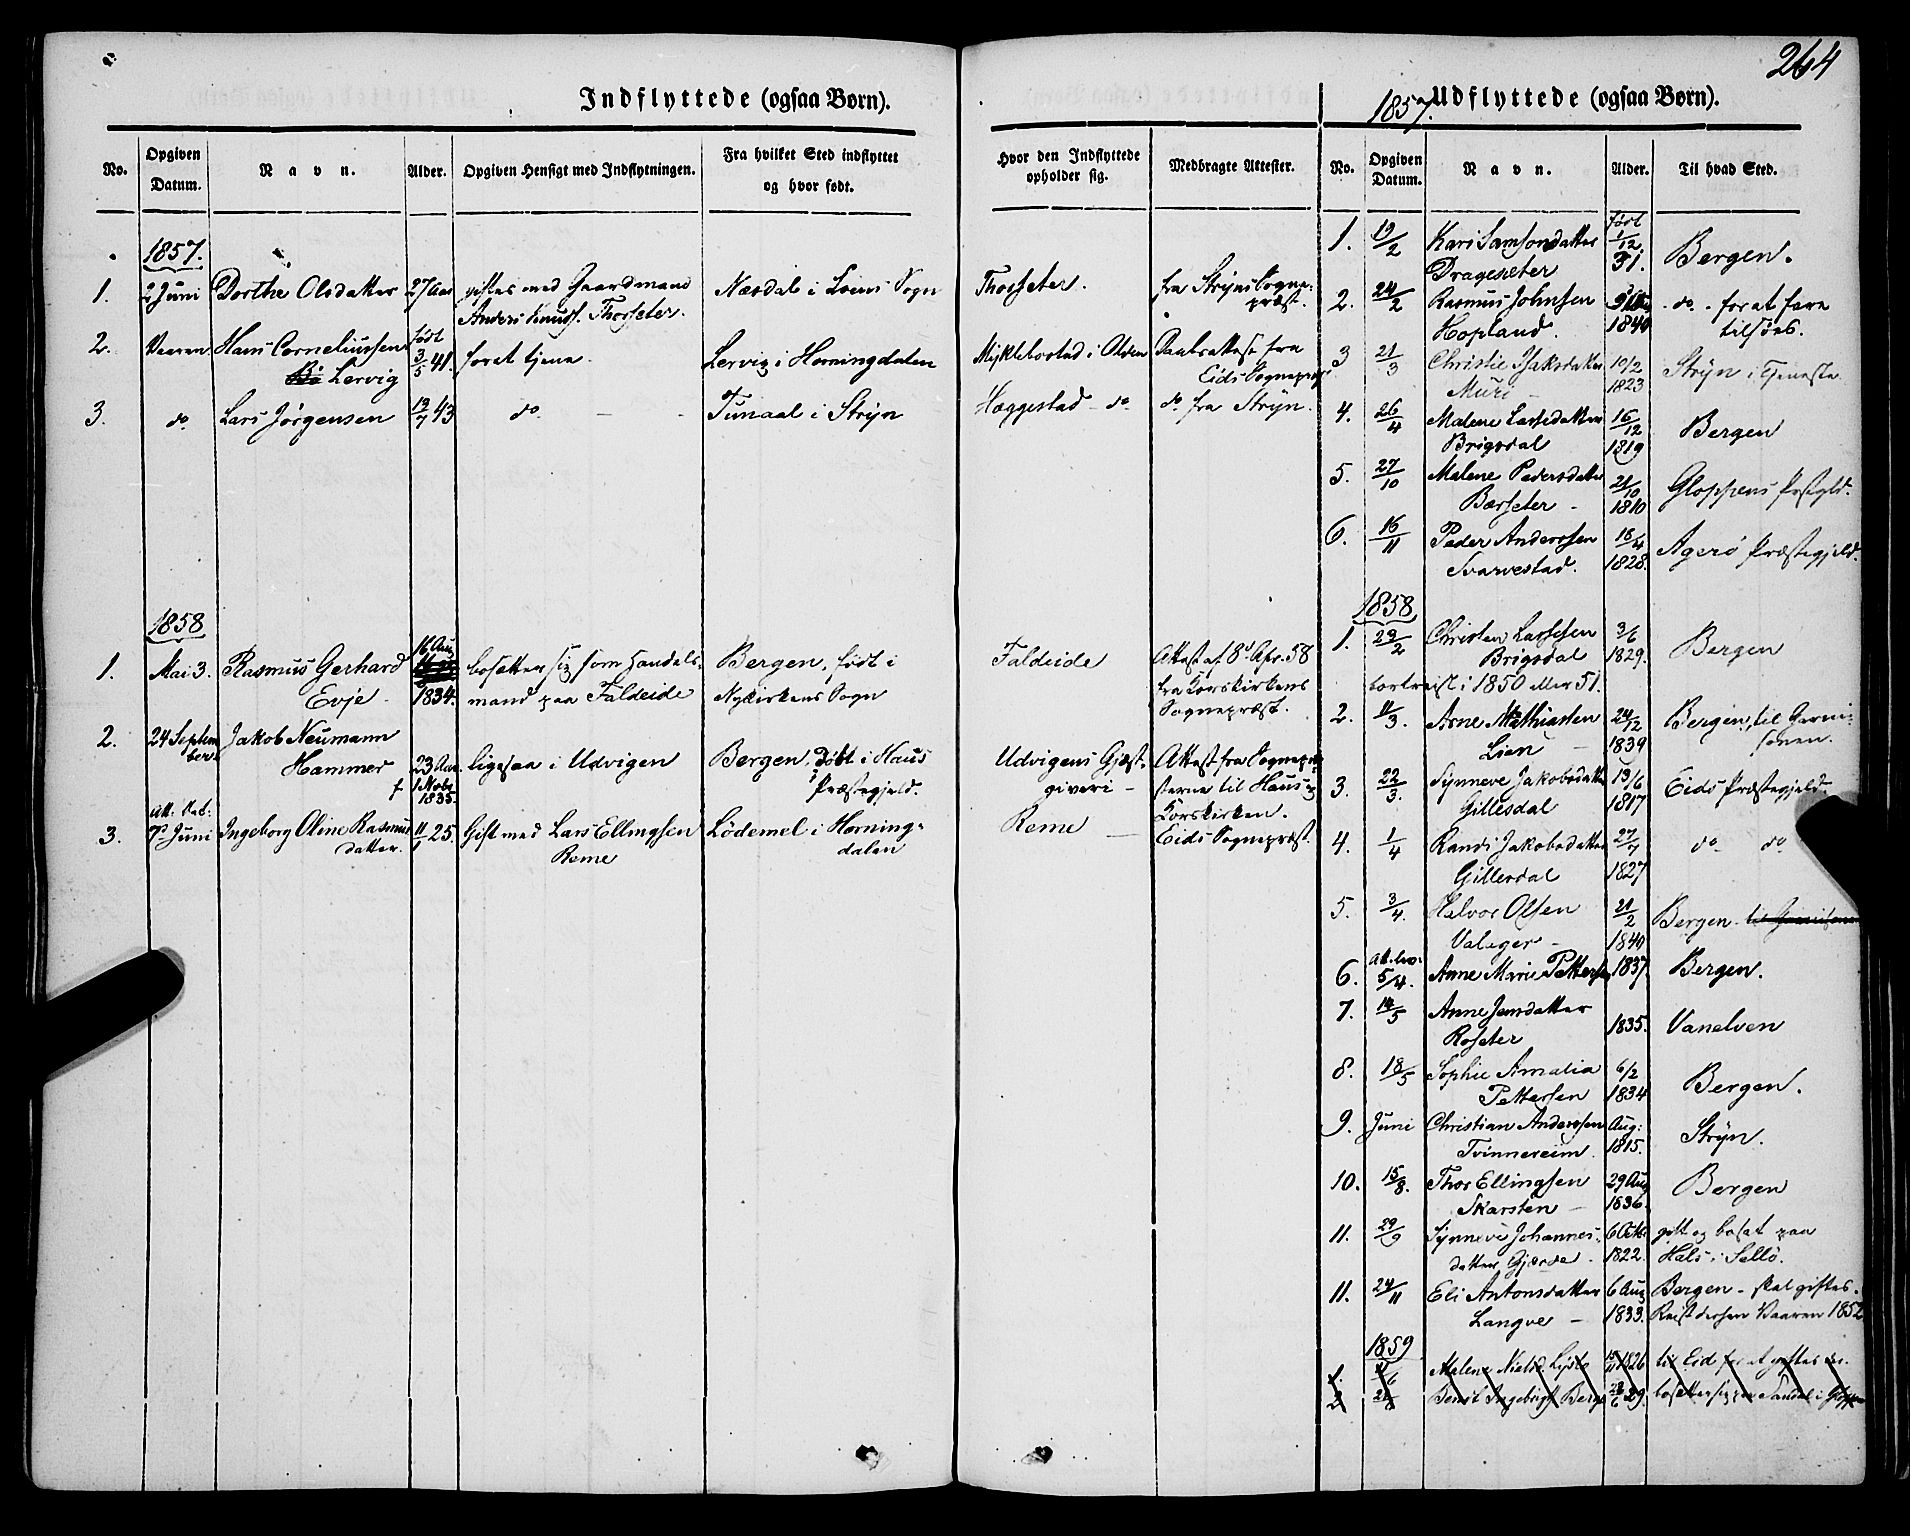 264
Indflyttede (ogsaa Børn).
No.
Opgiven Datum.
Navn.
Alder.
Opgiven Hensigt med Indflytningen.
Fra hvilket Sted indflyttet og hvor født.
Hvor den Indflyttede opholder sig.
Medbragte Attester.
1857.
1. 2 Juni Dorthe Olsdatter 27 Aar giftes med Gaardmand Næsdal i Loens Sogn Thorseter. fra Stryns Sogne-
Anders Knuds. Thorseter. præst.
2. Vaaren Hans Corneliussen født 3/5 41. forat tjene. Lervig i Horningdalen Myklebostad i Olden Daabsattest fra
Lervig Eids Sognepræst
3. do Lars Jørgensen 13/7 43 do Tunaal i Stryn Heggestad - do. do. fra Stryn.
1858
1. Mai 3. Rasmus Gerhard 16 Aug bosætter sig som Handels- Bergen, født i Faldeide Attest af 8d Apr. 58
Evje 1834. mand paa Faldeide Nykirkens Sogn fra Korskirkens
Sognepræst.
2. 24 Septem- Jakob Neumann
ber Hammer 23 Aar. ligesaa i Udvigen Bergen, døbt i Haus Udvigens Gjæst- Attest fra Sognepræ-
f 1 Nobr 1835. Præstegjeld. giveri - sterne til Haus og
Korskirken.
Att. dat.
3. 7d Juni Ingeborg Oline Rasmus 11/1 25. Gift med Lars Ellingsen Lödemel i Horning- Reme Eids Sognepræst.
datter. Reme dalen
1857.
Udflyttede (ogsaa Børn).
No.
Opgiven Datum.
Navn.
Alder.
Til hvad Sted.
1. 19/2 Kari Samsondatter født 1/12 Bergen.
Drageseter 31.
2. 24/2 Rasmus Johnsen do. forat fare
Hopland. 1840 tilsøes.
3 21/3 Christie Isaksdatter 10/2 Stryn i Tjeneste
Muri 1823
4. 26/4 Malene Larsedatter 16/12 Bergen
Brigsdal 1819
5. 27/10 Malene Pedersdatter 21/10 Gloppens Præstgld.
Bærseter - 1810
6. 16/11 Peder Anderssen 16/4 Agerö Præstegjeld.
Svarvestad. 1828.
1858
1. 23/2 Christen Larsesen 3/6 Bergen
Brigsdal 1829.
bortreist i 1850 eller 51.
2. 11/3. Arne Mathiassen 24/12 Bergen, til Garni-
Lien - 1839 sonen.
3. 22/3. Synneve Jakobsdatter 13/6 Eids Præstegjeld
Gillesdal 1817
4. 1/4 Randi Jakobsdatter 27/7 do do
Gillesdal 1827
5. 3/4. Halvor Olsen 21/2 Bergen
Valager - 1840
6. 5/4. Anne Marie Pettersen 1837 Bergen.
7. 14/5 Anne Jensdatter
Roseter 1835. Vanelven
8. 18/5 Sophie Amalia 6/2
Pettersen 1834 Bergen.
9. Juni Christian Anderssen Aug:
Tvinnereim. 1815. Stryn.
10. 15/8. Thor Ellingsen 29 Aug Bergen
Skarsten - 1836
11. 29/9 Synneve Johannes- 6 Octb gift og bosat paa
datter Gjærde. 1822. Hals i Sellö.
11. 24/11 Eli Antonsdatter 6 Aug Bergen - skal giftes.
Langve - 1833. Reist dersen Vaaren 1852
1859
1. 11/6 Malene Nielsd. 1826 til Eid for at giftes der.
2. Bernt Ingebrigt Berge 29. bosætter sig paa Sandal i Gloppen